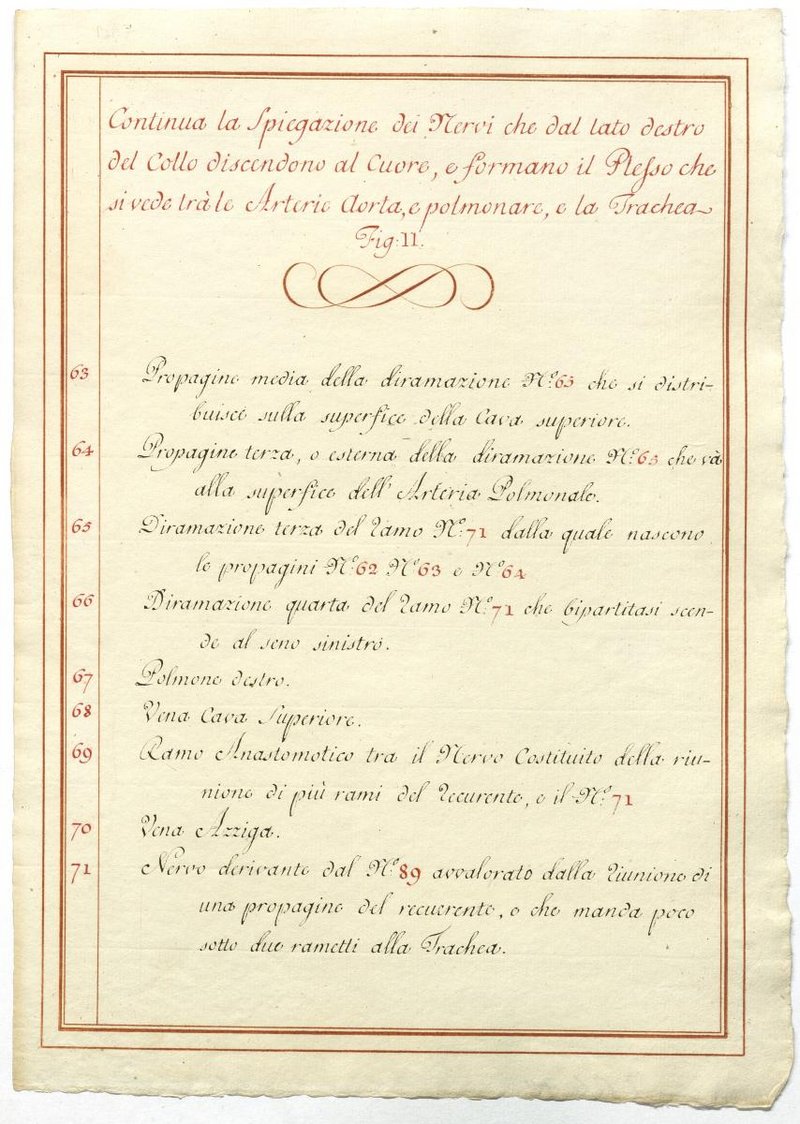 Continua la Spiegazione dei Nervi che dal lato destro
del Collo discendono al Cuore, e formano il Plesso che
si vede trà le Arterie Aorta, e polmonare, e la Trachea
Fig: 11.
63 Propagine media della diramazione N.º 65 che si distri-
buisce sulla superfice della Cava superiore.
64 Propagine terza, o esterna della diramazione N.º 65 che và
alla superfice dell' Arteria Polmonale.
65 Diramazione terza del ramo N.º 71 dalla quale nascono
le propagini N.º 62 N.º 63 e N.º 64
66 Diramazione quarta del ramo N.º 71 che bipartitasi scen-
de al seno sinistro.
67 Polmone destro.
68 Vena Cava Superiore.
69 Ramo Anastomotico tra il Nervo Costituito della riu-
nione di più rami del recurente, e il N.º 71
70 Vena Azziga.
71 Nervo derivante dal N.º 89 avvalorato dalla riunione di
una propagine del recuerente, e che manda poco
sotto due rametti alla Trachea.